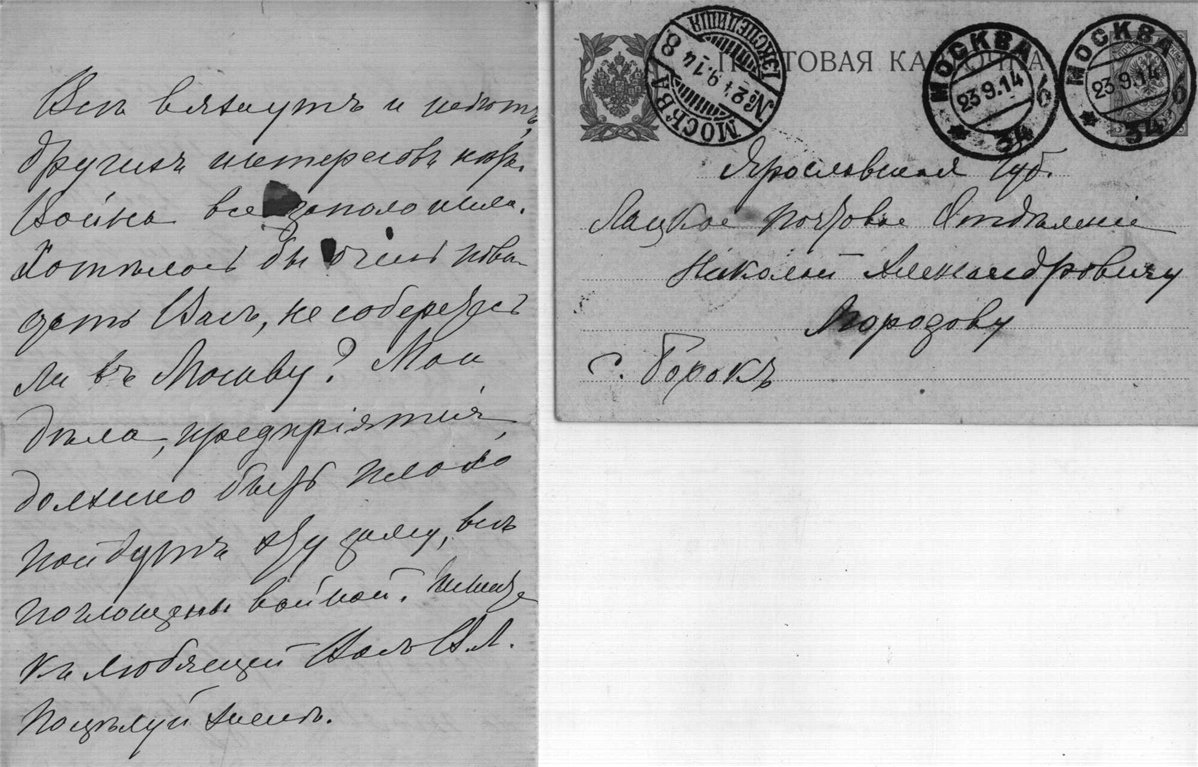 Всѣ вянутъ и
другихъ интересовъ
Война все заполонила.
Хотѣлось бы очень пови-
дать Васъ, не соберетесь
ли въ Москву? Мои
дѣла, предпріятія,
должно быть плохо
пойдутъ эту зиму, всѣ
поглощены войной.
любящей Васъ
Поцѣлуй
ПОЧТОВАЯ КАРТОЧКА
МОСКВА 8
21.9.14
ЭКСПЕДИЦІЯ
МОСКВА
23.9.14
34
МОСКВА
23.9.14
34
Ярославская Губ.
Лацкое Почтовое Отдѣленіе
Николаю Александровичу
Морозову
с. Борокъ